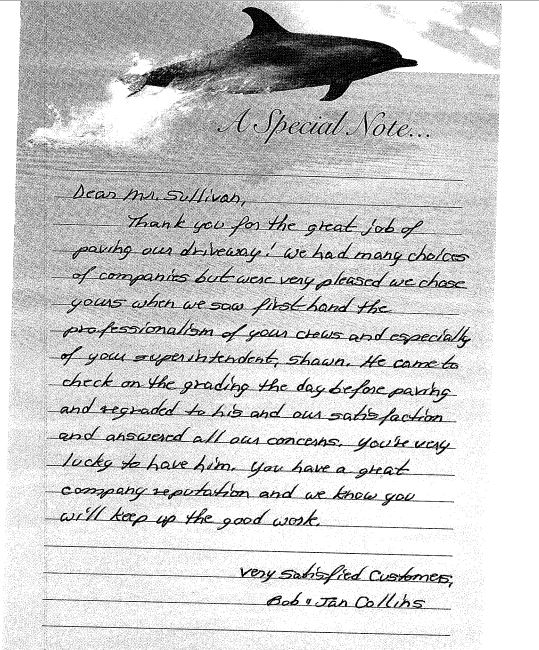 A Special Note...
Dear Mr. Sullivan,
Thank you for the great job of
paving our driveway! We had many choices
of companies but were very pleased we chose
yours when we saw first hand the
professionalism of your crews and especially
of your superintendent, Shawn. He came to
check on the grading the day before paving
and regraded to his and our satisfaction
and answered all our concerns. You're very
lucky to have him. You have a great
company reputation and we know you
will keep up the good work.
Very Satisfied Customers,
Bob & Jan Collins